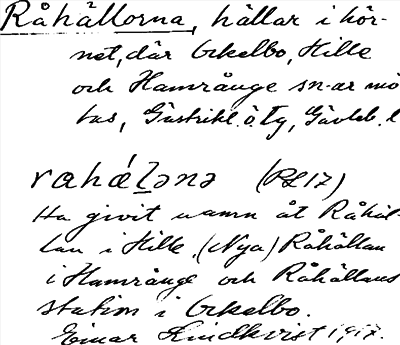 Råhällorna, hällar i hör-
net, där Ockelbo, Hille
och Hamrånge sn-ar mö
tas, Gästrikl. ö. Tg, Gävleb. l
(RL17)
Ha givit namn åt Råhäl-
lan i Hille, (Nya) Råhällan
i Hamrånge och Råhällans
station i Ockelbo.
Einar Lindkvist 1917.